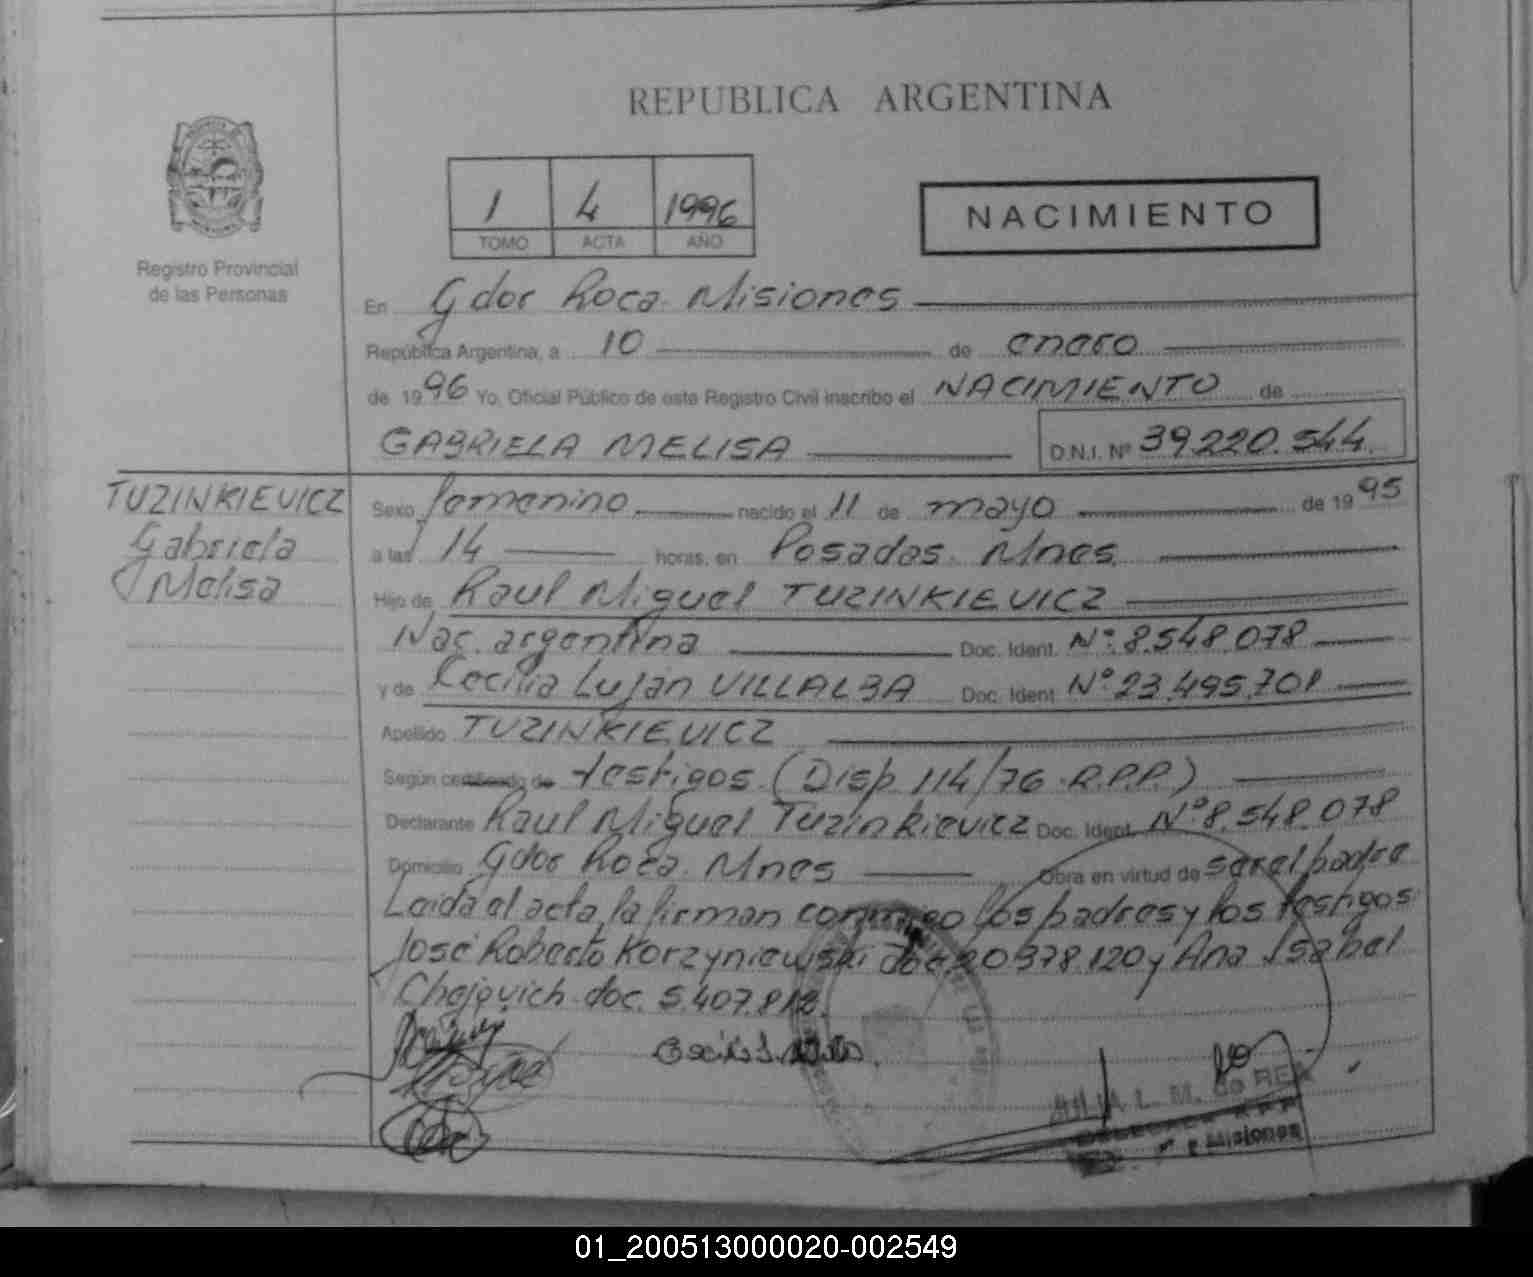 REPUBLICA ARGENTINA
1 4 1996
TOMO ACTA AÑO
NACIMIENTO
Registro Provincial
de las Personas
En Gdor Roca. Misiones
República Argentina, a 10 de enero
de 1996 Yo, Oficial Público de este Registro Civil inscribo el NACIMIENTO de
GABRIELA MELISA D.N.I. Nº 39.220.544
TUZINKIEVICZ
Gabriela
Melisa
Sexo femenino nacido el 11 de mayo de 1995
a las 14 horas, en Posadas. Mnes
Hijo de Raul Miguel TUZINKIEVICZ
Nac. argentina Doc. Ident. Nº 8.548.078
y de Cecilia Luján VILLALBA Doc. Ident Nº 23.495.701
Apellido TUZINKIEVICZ
Según certificado de testigos (Disp. 114/76 R.P.P.)
Declarante Raul Miguel Tuzinkievicz Doc. Ident. Nº 8.548.078
Domicilio Gdor Roca. Mnes Obra en virtud de ser el padre
Leida el acta, la firman conmigo los padres y los testigos
José Roberto Korzyniewski doc 20.378.120 y Ana Isabel
Chejovich doc. 5.407.812.
JULIA L. M. de REA
Misiones
01_200513000020-002549